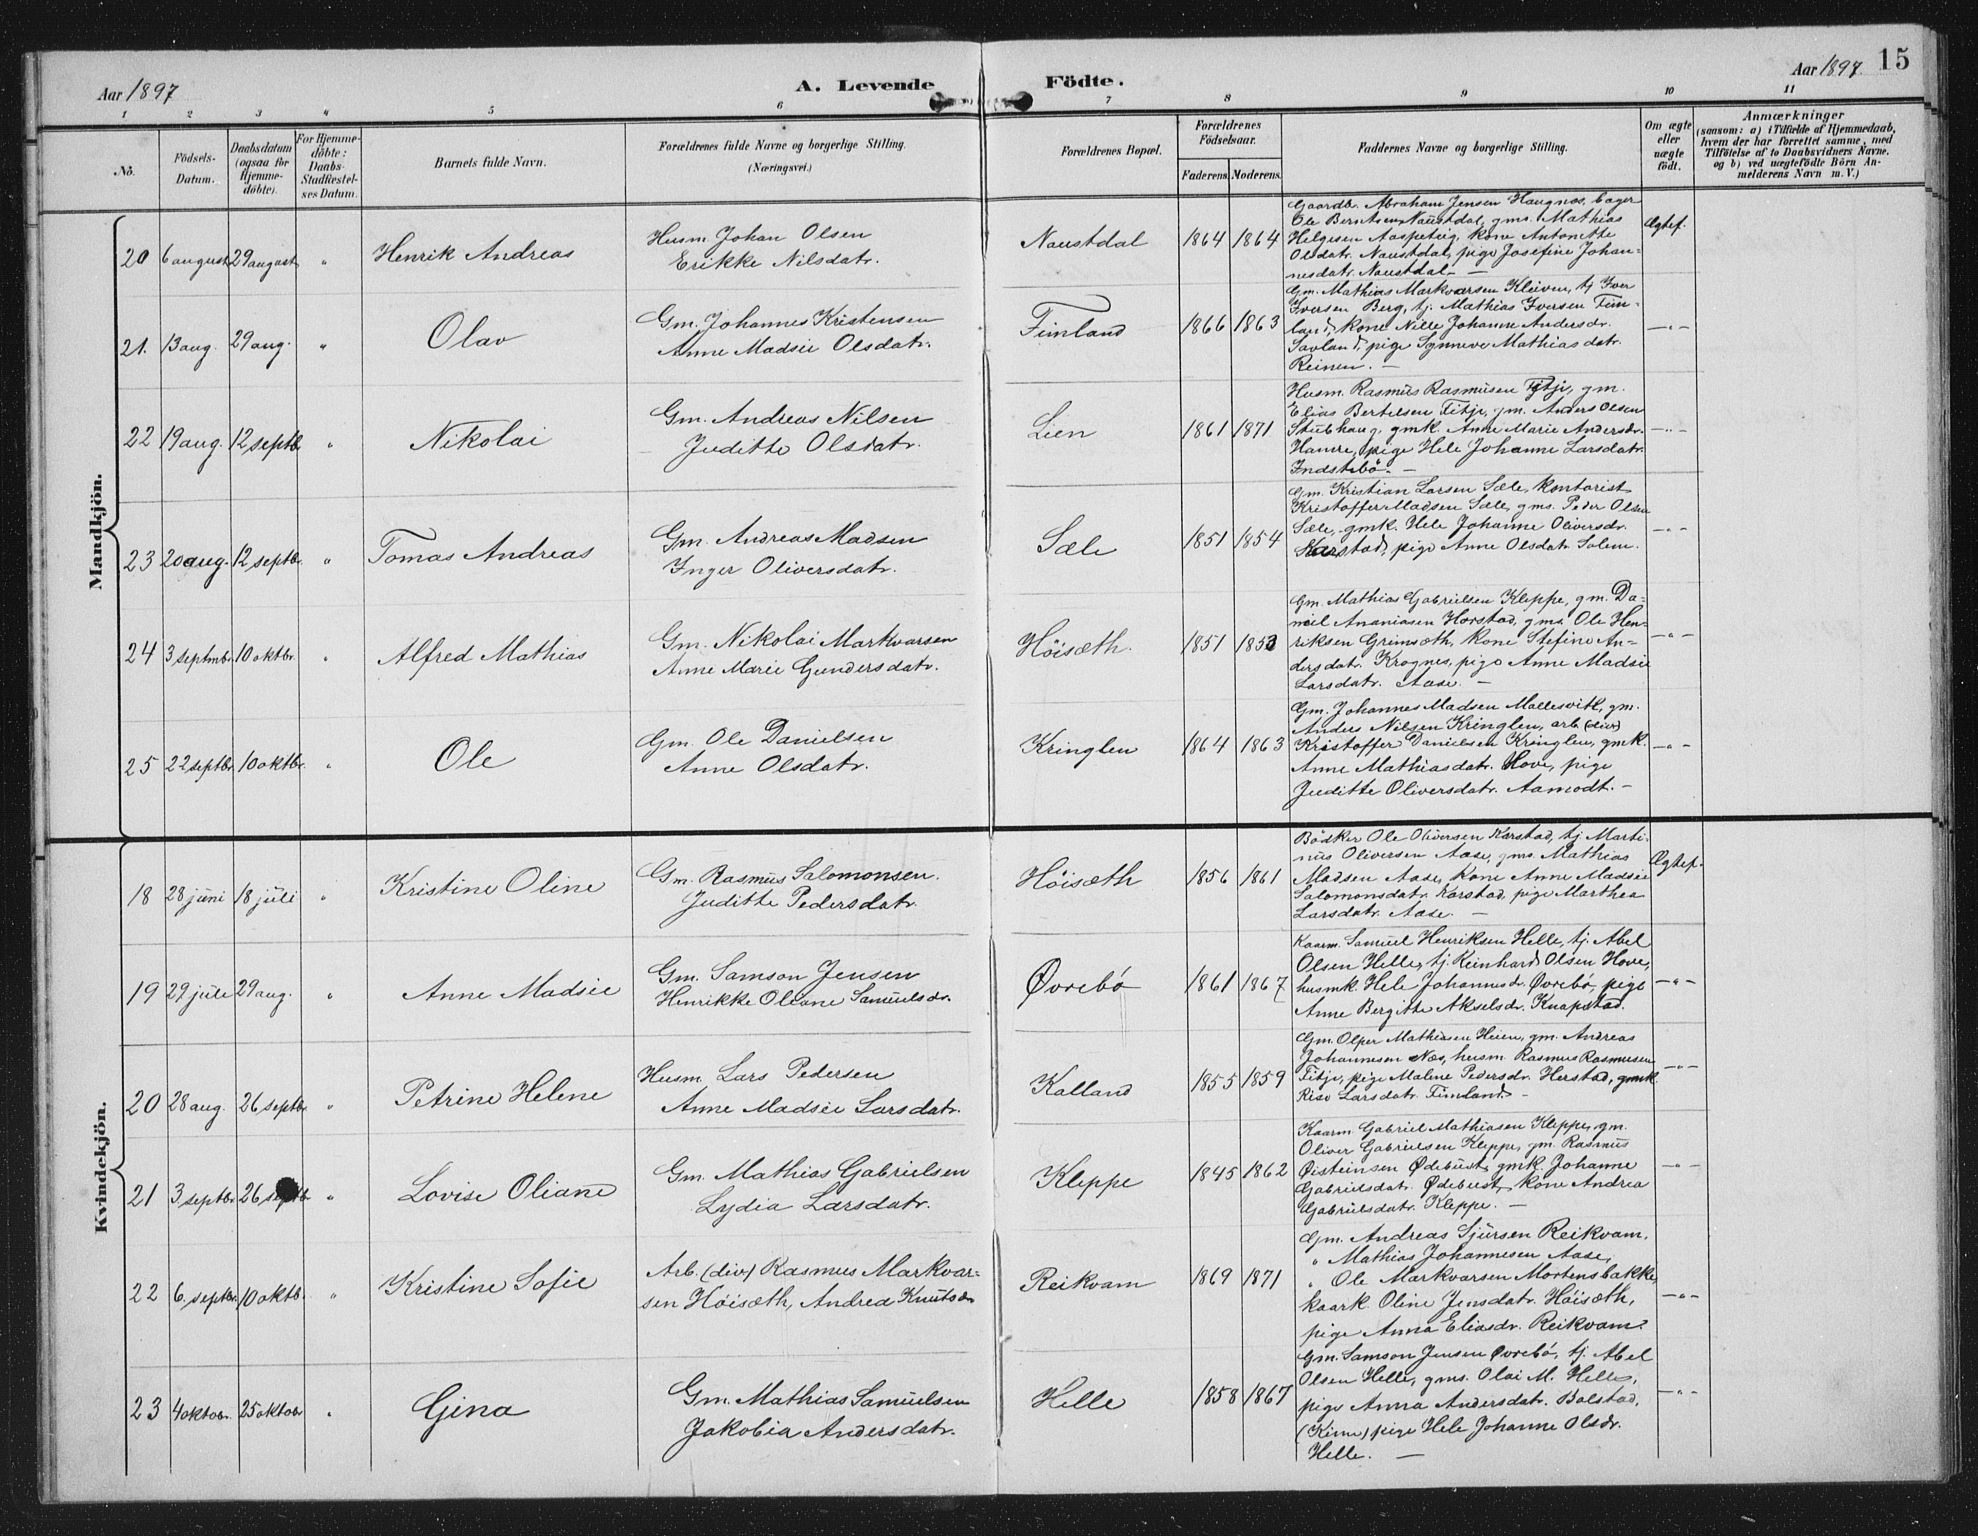 Aar 1897
A. Levende Födte.
Aar 1897. 15
1 2 3 4 5 6 7 8 9 10 11
No.
Födsels-Datum.
Daabsdatum (ogsaa for Hjemme-döbte).
For Hjemme-döbte: Daabs-Stadfæstelses Datum.
Barnets fulde Navn.
Forældrenes fulde Navne og borgerlige Stilling. (Næringsvei.)
Forældrenes Bopæl.
Forældrenes Födselsaar.
Faderens. Moderens.
Faddernes Navne og borgerlige Stilling.
Om ægte eller uægte födt.
Anmærkninger
(saasom: a) i Tilfælde af Hjemmedaab, hvem der har forrettet samme, med Tilföielse af to Daabsvidners Navne. og b) ved uægtefödte Börn Anmelderens Navn m. V.)
Mandkjön.
20 6 august 29 august " Henrik Andreas
Husm. Johan Olsen
Erikke Nilsdatr.
Naustdal 1864 1864
Gaardb. Abraham Jensen Haugnæs, bager
Ole Berntsen Naustdal, gms. Mathias
Helgesen Aaspeteig, kone Antonette
Olsdatr. Naustdal, pige Josefine Johan-
nesdatr. Naustdal. —
Ægtef.
21. 13 aug. 29 aug. " Olav
Gm. Johannes Kristensen
Anne Madsie Olsdatr.
Fimland 1866 1863
Gm. Mathias Markvarsen Kleiven, tj Iver
Iversen Berg, tj. Mathias Iversen Fim-
land, kone Nille Johanne Andersdr.
Savland, pige Synneve Mathiasdatr.
Reinen. —
—"—
22 19 aug. 12 septbr " Nikolai
Gm. Andreas Nilsen
Juditte Olsdatr.
Lien 1861 1871
Husm. Rasmus Rasmusen Fitje, gm.
Elias Bertelsen Fitje, gm. Anders Olsen
Stubhaug, gmk. Anne Marie Andersdr.
Hamre, pige Hele Johanne Larsdatr.
Indstebö. —
—"—
23 20 aug. 12 septbr. " Tomas Andreas
Gm. Andreas Madsen
Inger Oliversdatr.
Sæle 1851 1854
Gm. Kristian Larsen Sæle, kontorist
Kristoffer Madsen Sæle, gms. Peder Olsen
Sæle, gmk. Hele Johanne Oliversdr.
Karstad, pige Anne Olsdatr. Solem.
—"—
24 3 septmbr. 10 oktbr. " Alfred Mathias
Gm. Nikolai Markvarsen
Anne Marie Gundersdatr.
Höisæth. 1851 1853
Gm. Mathias Gabrielsen Kleppe, gm. Da-
niel Ananiasen Horstad, gms. Ole Hen-
riksen Grimsæth, kone Stefine An-
dersdatr. Krognes, pige Anne Madsie
Larsdatr. Aase. —
—"—
25 22 septbr. 10 oktbr. " Ole
Gm. Ole Danielsen
Anne Olsdatr.
Kringlen 1864 1863
Gm. Johannes Madsen Mallesvik, gm.
Anders Nilsen Kringlen, arb (div)
Kristoffer Danielsen Kringlen, gmk.
Anne Mathiasdatr. Hove, pige
Juditte Oliversdatr. Aamodt. —
—"—
Kvindekjön.
18 28 juni 18 juli " Kristine Oline
Gm. Rasmus Salomonsen.
Juditte Pedersdatr.
Höisæth 1856 1861
Bödker Ole Oliversen Karstad, tj Marti-
nius Oliversen Aase, gms. Mathias
Madsen Aase, kone Anne Madsie
Salomonsdatr. Karstad, pige Marthea
Larsdatr. Aase. —
Ægtef.
19 29 juli 29 aug. " Anne Madsie
Gm. Samson Jensen
Henrikke Oliane Samuelsdr.
Øvrebö 1861 1867
Kaarm. Samuel Henriksen Helle, tj. Abel
Olsen Helle, tj. Reinhard Olsen Hove,
husmk. Hele Johannesdr. Øvrebö, pige
Anne Bergitte Akselsdr. Knapstad.
—"—
20 28 aug. 26 septbr. " Petrine Helene
Husm. Lars Pedersen
Anne Madsie Larsdatr.
Kalland 1855 1859
Gm. Olper Mathiasen Heien, gm. Andreas
Johannesen Næs, husm. Rasmus Rasmusen
Fitje, pige Malene Pedersdr. Herstad, gmk
Rise Larsdatr. Fimland. —
—"—
21 3 septbr. 26 septbr " Lovise Oliane
Gm. Mathias Gabrielsen
Lydia Larsdatr.
Kleppe 1845 1862
Kaarm. Gabriel Mathiasen Kleppe, gm.
Oliver Gabrielsen Kleppe, gm. Rasmus
Øisteinsen Ødebust, gmk. Johanne
Gabrielsdatr. Ødebust, kone Andrea
Gabrielsdatr. Kleppe. —
—"—
22 6. septbr. 10 oktb. " Kristine Sofie
Arb. (div) Rasmus Markvar-
sen Höisæth, Andrea Knutsdr
Reikvam 1869 1871
Gm. Andreas Sjursen Reikvam,
" Mathias Johannesen Aase,
" Ole Markvarsen Mortensbakke,
kaark. Oline Jensdatr. Höisæth,
pige Anna Eliasdr. Reikvam.
—"—
23 4 oktobr. 25 oktobr " Gina
Gm. Mathias Samuelsen
Jakobia Andersdatr.
Helle 1858 1867
Gm. Samson Jensen Øvrebö, tj. Abel
Olsen Helle, gms. Olai M. Helle,
pige Anna Andersdatr. Bolstad,
(Kinn) pige Hele Johanne Olsdr.
Helle. —
—"—